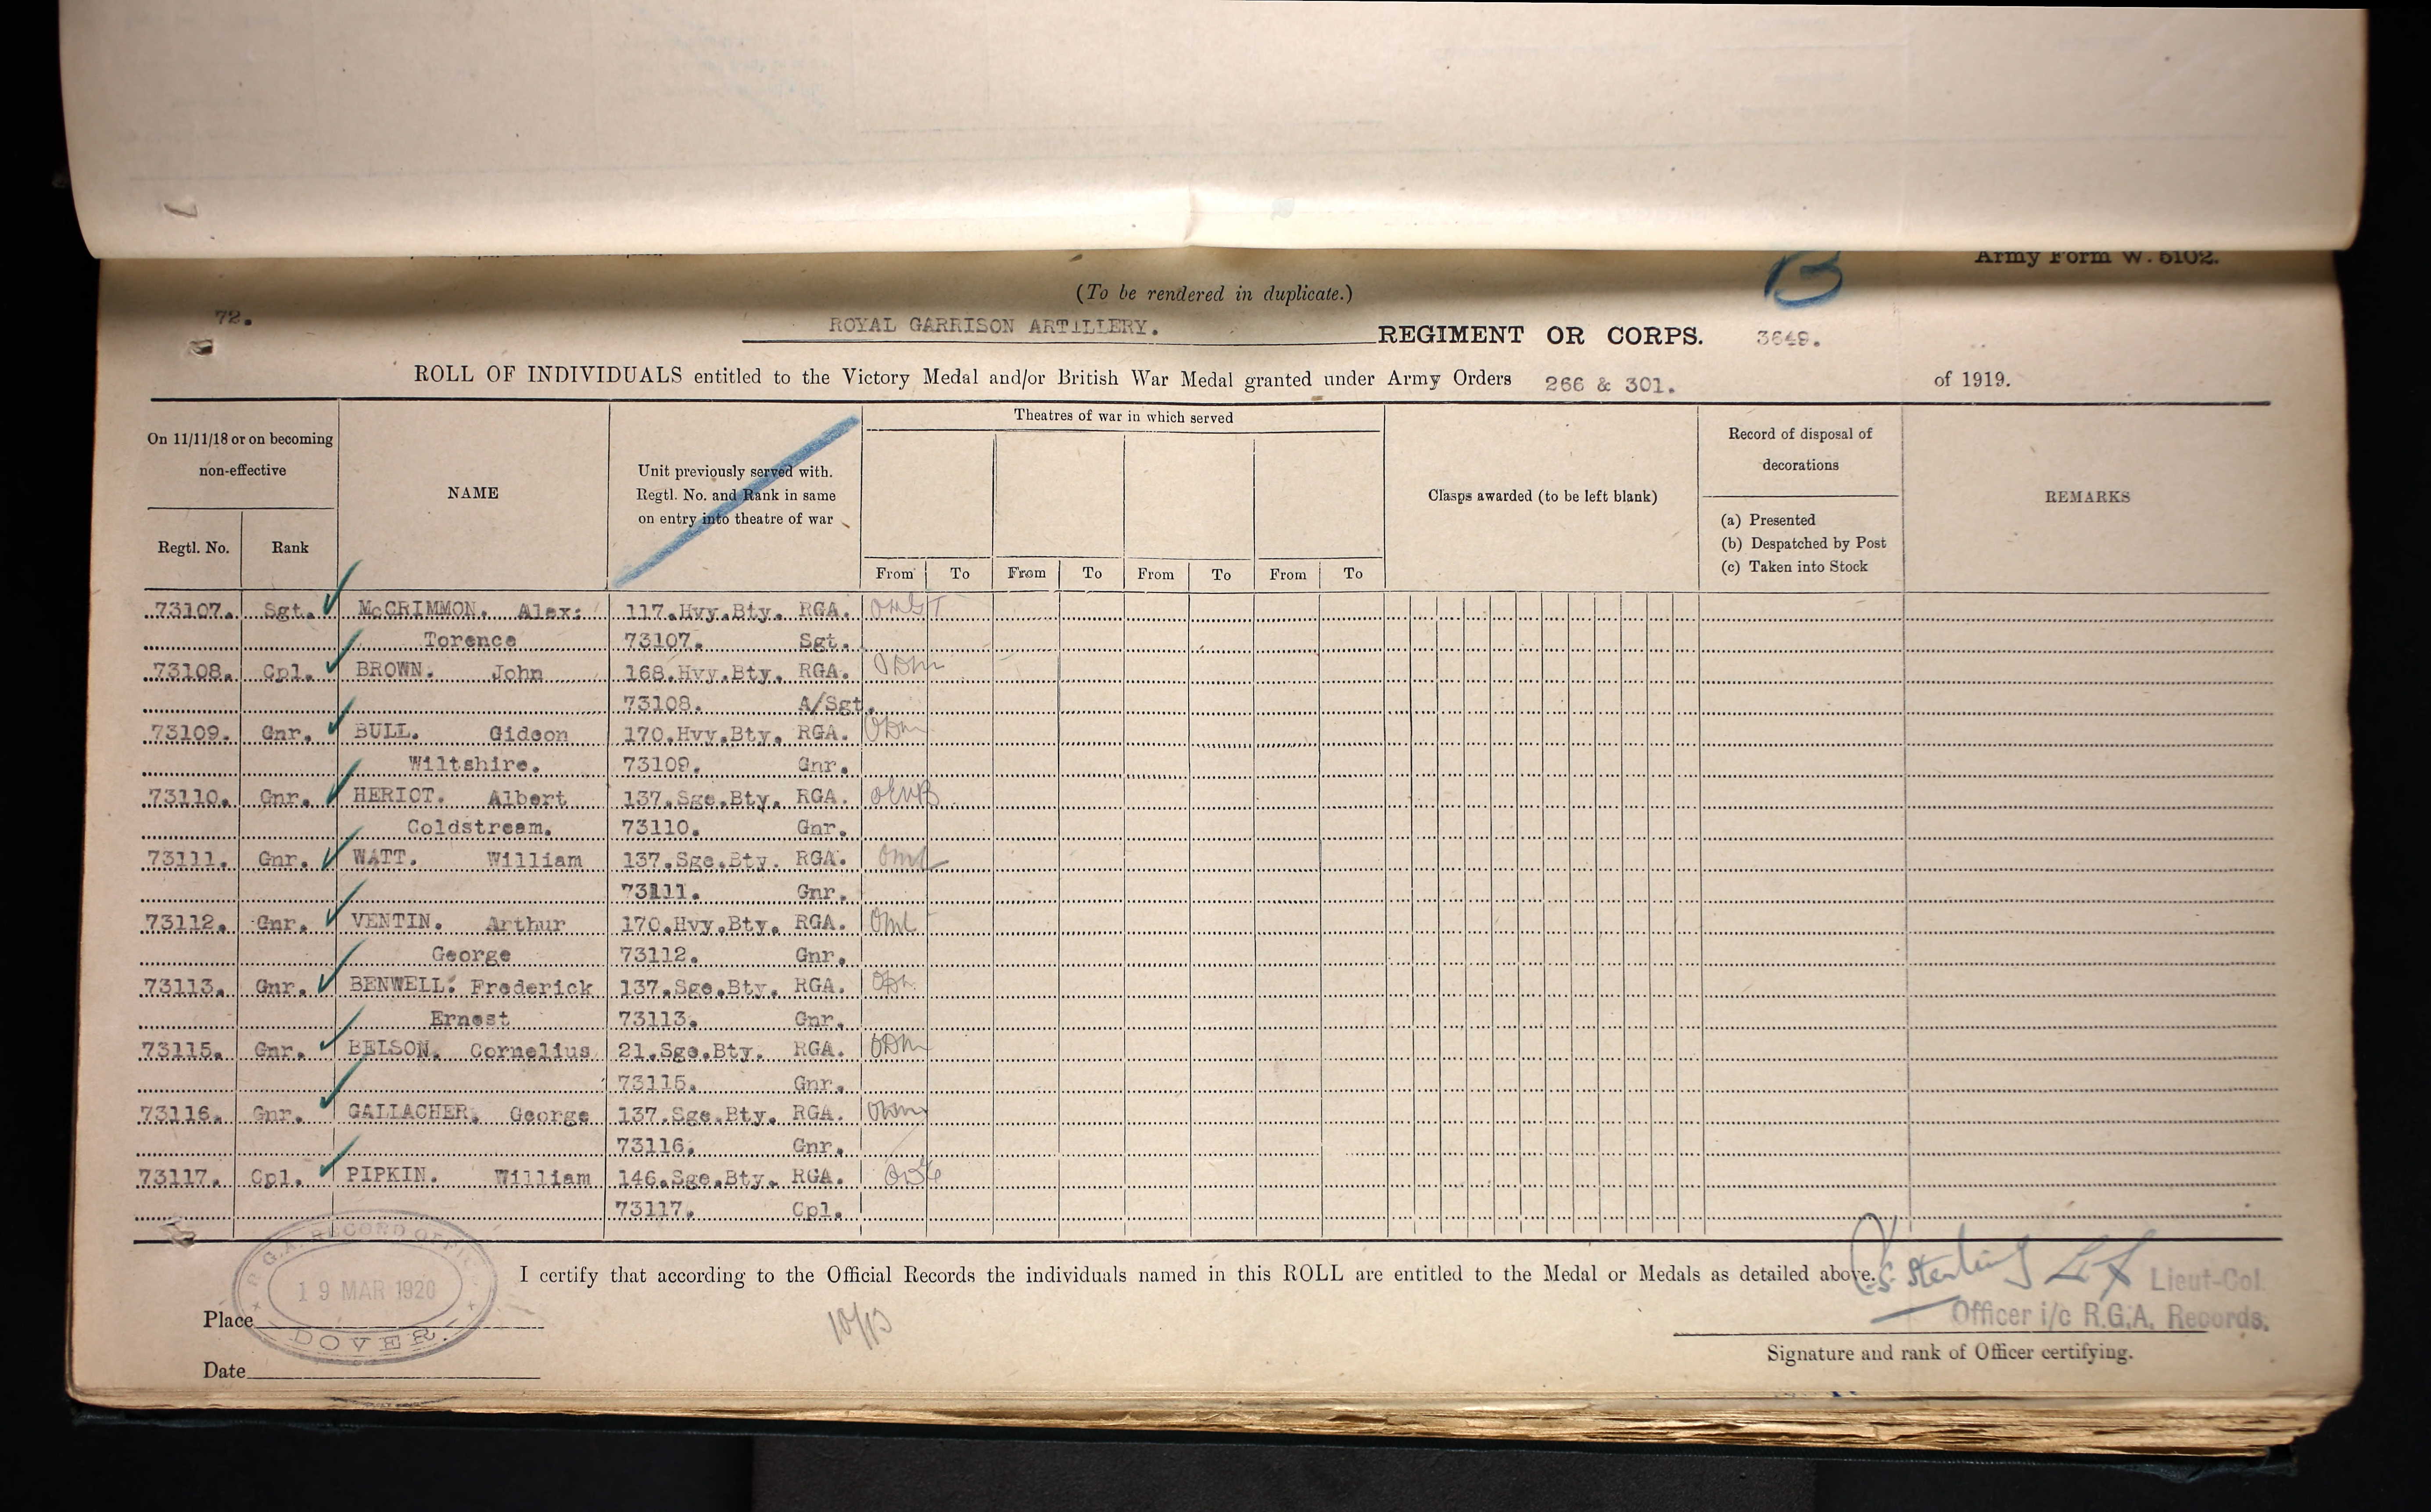 Army Form W. 5102.
B
(To be rendered in duplicate.)
72.
ROYAL GARRISON ARTILLERY. REGIMENT OR CORPS. 3649.
ROLL OF INDIVIDUALS entitled to the Victory Medal and/or British War Medal granted under Army Orders 266 & 301. of 1919.
On 11/11/18 or on becoming non-effective
Regtl. No. Rank
NAME
Unit previously served with.
Regtl. No. and Rank in same
on entry into theatre of war
Theatres of war in which served
From To From To From To From To
Clasps awarded (to be left blank)
Record of disposal of
decorations
(a) Presented
(b) Despatched by Post
(c) Taken into Stock
REMARKS
73107. Sgt. McCRIMMON. Alex: 117.Hvy.Bty. RGA.
Torence 73107. Sgt.
73108. Cpl. BROWN. John 168.Hvy.Bty. RGA.
73108. A/Sgt.
73109. Gnr. BULL. Gideon 170.Hvy.Bty. RGA.
Wiltshire. 73109. Gnr.
73110. Gnr. HERIOT. Albert 137.Sge.Bty. RGA.
Coldstream. 73110. Gnr.
73111. Gnr. WATT. William 137.Sge.Bty. RGA.
73111. Gnr.
73112. Gnr. VENTIN. Arthur 170.Hvy.Bty. RGA.
George 73112. Gnr.
73113. Gnr. BENWELL. Frederick 137.Sge.Bty. RGA.
Ernest 73113. Gnr.
73115. Gnr. BELSON. Cornelius 21.Sge.Bty. RGA.
73115. Gnr.
73116. Gnr. GALLACHER. George 137.Sge.Bty. RGA.
73116. Gnr.
73117. Cpl. PIPKIN. William 146.Sge.Bty. RGA.
73117. Cpl.
I certify that according to the Official Records the individuals named in this ROLL are entitled to the Medal or Medals as detailed above.
Lieut-Col.
Officer i/c R.G.A. Records.
Signature and rank of Officer certifying.
R.G.A. RECORD OFFICE
19 MAR 1920
DOVER.
Place
Date